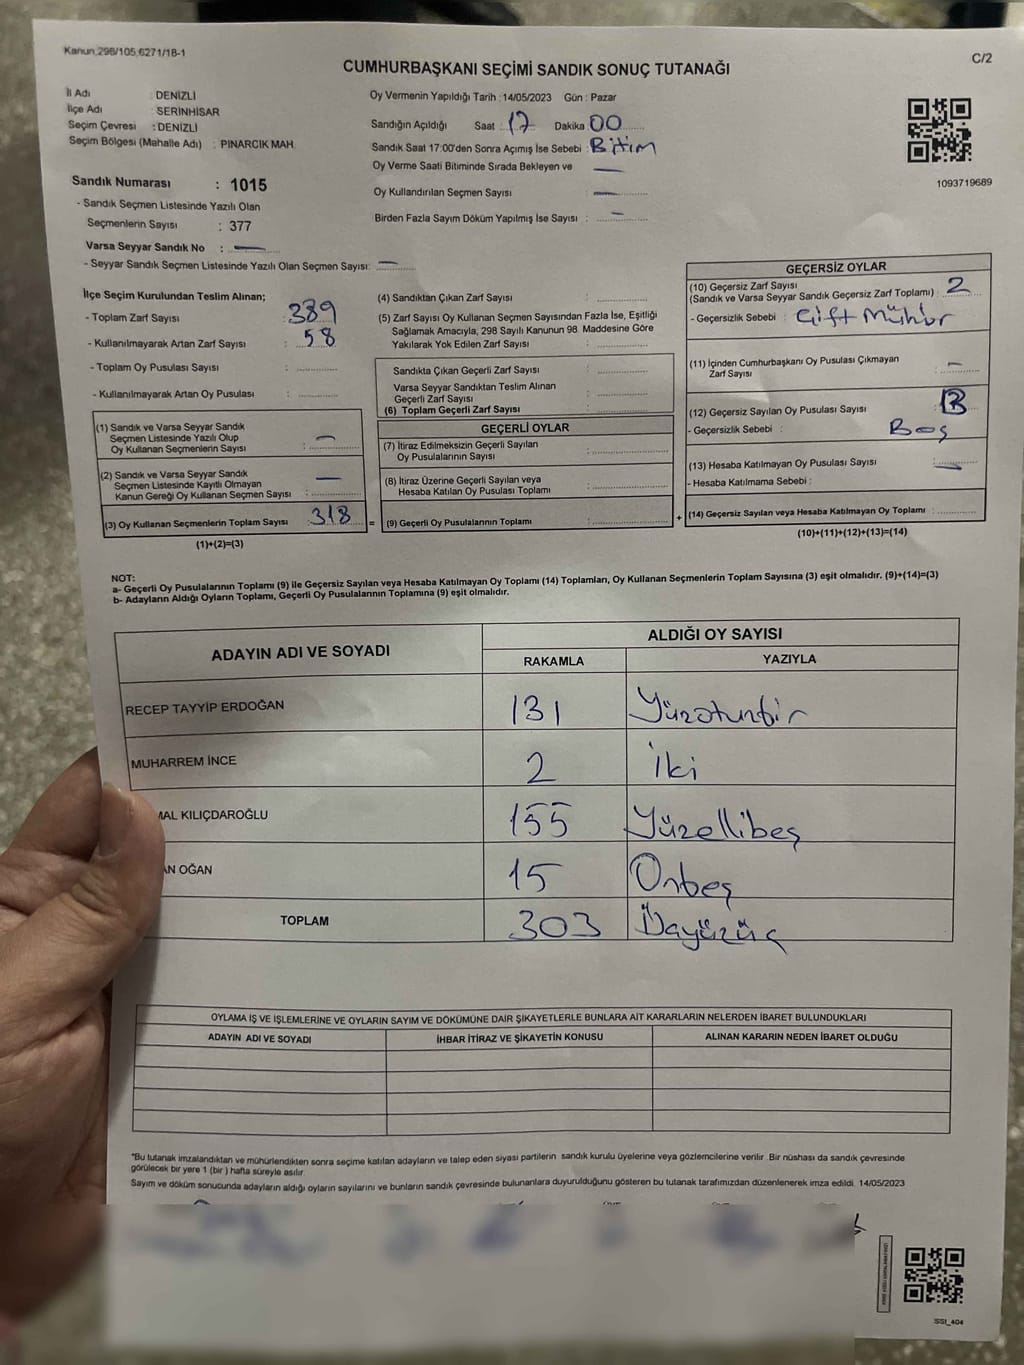 Kanun 298/105 6271/18-1
C/2
CUMHURBAŞKANI SEÇİMİ SANDIK SONUÇ TUTANAĞI
İl Adı : DENİZLİ
İlçe Adı : SERİNHİSAR
Seçim Çevresi : DENİZLİ
Seçim Bölgesi (Mahalle Adı) : PINARCIK MAH.
Sandık Numarası : 1015
- Sandık Seçmen Listesinde Yazılı Olan
Seçmenlerin Sayısı : 377
Varsa Seyyar Sandık No : —
- Seyyar Sandık Seçmen Listesinde Yazılı Olan Seçmen Sayısı: —
Oy Vermenin Yapıldığı Tarih : 14/05/2023 Gün : Pazar
Sandığın Açıldığı Saat : 17 Dakika 00
Sandık Saat 17:00'den Sonra Açımış İse Sebebi : Bitim
Oy Verme Saati Bitiminde Sırada Bekleyen ve —
Oy Kullandırılan Seçmen Sayısı —
Birden Fazla Sayım Döküm Yapılmış İse Sayısı : —
1093719689
İlçe Seçim Kurulundan Teslim Alınan;
- Toplam Zarf Sayısı : 389
- Kullanılmayarak Artan Zarf Sayısı : 58
- Toplam Oy Pusulası Sayısı :
- Kullanılmayarak Artan Oy Pusulası :
(1) Sandık ve Varsa Seyyar Sandık
Seçmen Listesinde Yazılı Olup
Oy Kullanan Seçmenlerin Sayısı : —
(2) Sandık ve Varsa Seyyar Sandık
Seçmen Listesinde Kayıtlı Olmayan
Kanun Gereği Oy Kullanan Seçmen Sayısı : —
(3) Oy Kullanan Seçmenlerin Toplam Sayısı : 318 =
(1)+(2)=(3)
(4) Sandıktan Çıkan Zarf Sayısı :
(5) Zarf Sayısı Oy Kullanan Seçmen Sayısından Fazla İse, Eşitliği
Sağlamak Amacıyla, 298 Sayılı Kanunun 98. Maddesine Göre
Yakılarak Yok Edilen Zarf Sayısı :
Sandıkta Çıkan Geçerli Zarf Sayısı :
Varsa Seyyar Sandıktan Teslim Alınan
Geçerli Zarf Sayısı :
(6) Toplam Geçerli Zarf Sayısı :
GEÇERLİ OYLAR
(7) İtiraz Edilmeksizin Geçerli Sayılan
Oy Pusulalarının Sayısı :
(8) İtiraz Üzerine Geçerli Sayılan veya
Hesaba Katılan Oy Pusulası Toplamı :
(9) Geçerli Oy Pusulalarının Toplamı : +
GEÇERSİZ OYLAR
(10) Geçersiz Zarf Sayısı
(Sandık ve Varsa Seyyar Sandık Geçersiz Zarf Toplamı) : 2
- Geçersizlik Sebebi : Çift Mühür
(11) İçinden Cumhurbaşkanı Oy Pusulası Çıkmayan
Zarf Sayısı : —
(12) Geçersiz Sayılan Oy Pusulası Sayısı : 13
- Geçersizlik Sebebi : Boş
(13) Hesaba Katılmayan Oy Pusulası Sayısı : —
- Hesaba Katılmama Sebebi :
(14) Geçersiz Sayılan veya Hesaba Katılmayan Oy Toplamı :
(10)+(11)+(12)+(13)=(14)
NOT:
a- Geçerli Oy Pusulalarının Toplamı (9) ile Geçersiz Sayılan veya Hesaba Katılmayan Oy Toplamı (14) Toplamları, Oy Kullanan Seçmenlerin Toplam Sayısına (3) eşit olmalıdır. (9)+(14)=(3)
b- Adayların Aldığı Oyların Toplamı, Geçerli Oy Pusulalarının Toplamına (9) eşit olmalıdır.
ADAYIN ADI VE SOYADI
ALDIĞI OY SAYISI
RAKAMLA YAZIYLA
RECEP TAYYİP ERDOĞAN 131 Yüzotuzbir
MUHARREM İNCE 2 İki
MAL KILIÇDAROĞLU 155 Yüzellibeş
AN OĞAN 15 Onbeş
TOPLAM 303 Üçyüzüç
OYLAMA İŞ VE İŞLEMLERİNE VE OYLARIN SAYIM VE DÖKÜMÜNE DAİR ŞİKAYETLERLE BUNLARA AİT KARARLARIN NELERDEN İBARET BULUNDUKLARI
ADAYIN ADI VE SOYADI İHBAR İTİRAZ VE ŞİKAYETİN KONUSU ALINAN KARARIN NEDEN İBARET OLDUĞU
*Bu tutanak imzalandıktan ve mühürlendikten sonra seçime katılan adayların ve talep eden siyasi partilerin sandık kurulu üyelerine veya gözlemcilerine verilir. Bir nüshası da sandık çevresinde
görülecek bir yere 1 (bir) hafta süreyle asılır.
Sayım ve döküm sonucunda adayların aldığı oyların sayılarını ve bunların sandık çevresinde bulunanlara duyurulduğunu gösteren bu tutanak tarafımızdan düzenlenerek imza edildi. 14/05/2023
SSI_404